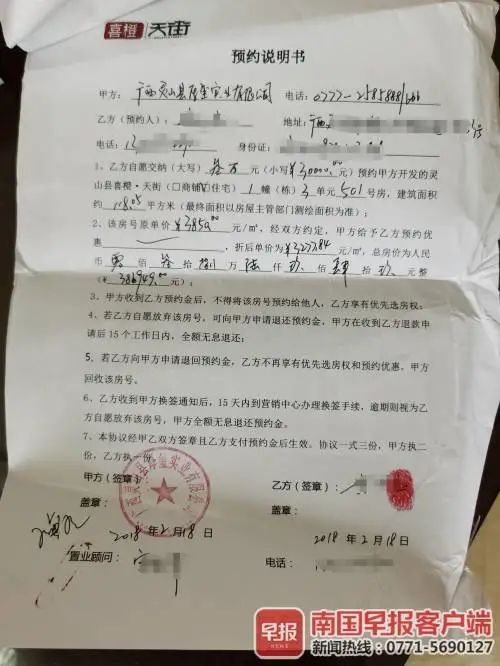 喜橙 天街
预约说明书
甲方:广西灵山县 实业有限公司 电话:0777-2585888/666
乙方(预约人): 地址:广西
电话:13 身份证:
1、乙方自愿交纳(大写)叁万元(小写¥30000.00)预约甲方开发的灵
山县喜橙·天街(□商铺 住宅)1幢(栋)3单元501号房,建筑面积
约118.05平方米(最终面积以房屋主管部门测绘面积为准);
2、该房号原单价¥3850.00元/㎡,经双方约定,甲方给予乙方预约优
惠 ,折后单价为¥3277.84元/㎡,总房价为人民
币 佰 拾 万陆仟玖佰肆拾玖元整
(¥386949.00元);
3、甲方收到乙方预约金后,不得将该房号预约给他人,乙方享有优先选房权;
4、若乙方自愿放弃该房号,可向甲方申请退还预约金,甲方在收到乙方退款申
请后15个工作日内,全额无息退还;
5、若乙方向甲方申请退回预约金,乙方不再享有优先选房权和预约优惠,甲方
回收该房号。
6、乙方收到甲方换签通知后,15天内到营销中心办理换签手续,逾期则视为乙
方自愿放弃该房号,甲方全额无息退还预约金。
7、本协议经甲乙双方签章且乙方支付预约金后生效。协议一式三份,甲方执二
份,乙方执一份。
甲方(签章): 乙方(签章):
盖章: 盖章:
2018年2月18日 2018年2月18日
置业顾问: 电话:
早报 南国早报客户端
新闻热线:0771-5690127